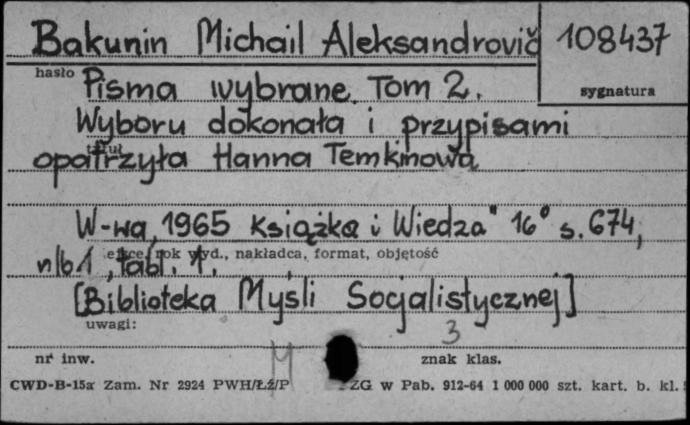 Bakunin Michail Aleksandrovič 108437
hasło
sygnatura
Pisma wybrane. Tom 2.
Wyboru dokonała i przypisami
tytuł
opatrzyła Hanna Temkinowa
W-wa, 1965 Książka i Wiedza" 16° s. 674,
rok wyd., nakładca, format, objętość
nlb 1, tabl. 1.
[Biblioteka Myśli Socjalistycznej]
uwagi:
3
nr inw. M znak klas.
CWD-B-15a Zam. Nr 2924 PWH/Łź/P ZG w Pab. 912-64 1 000 000 szt. kart. b. kl.